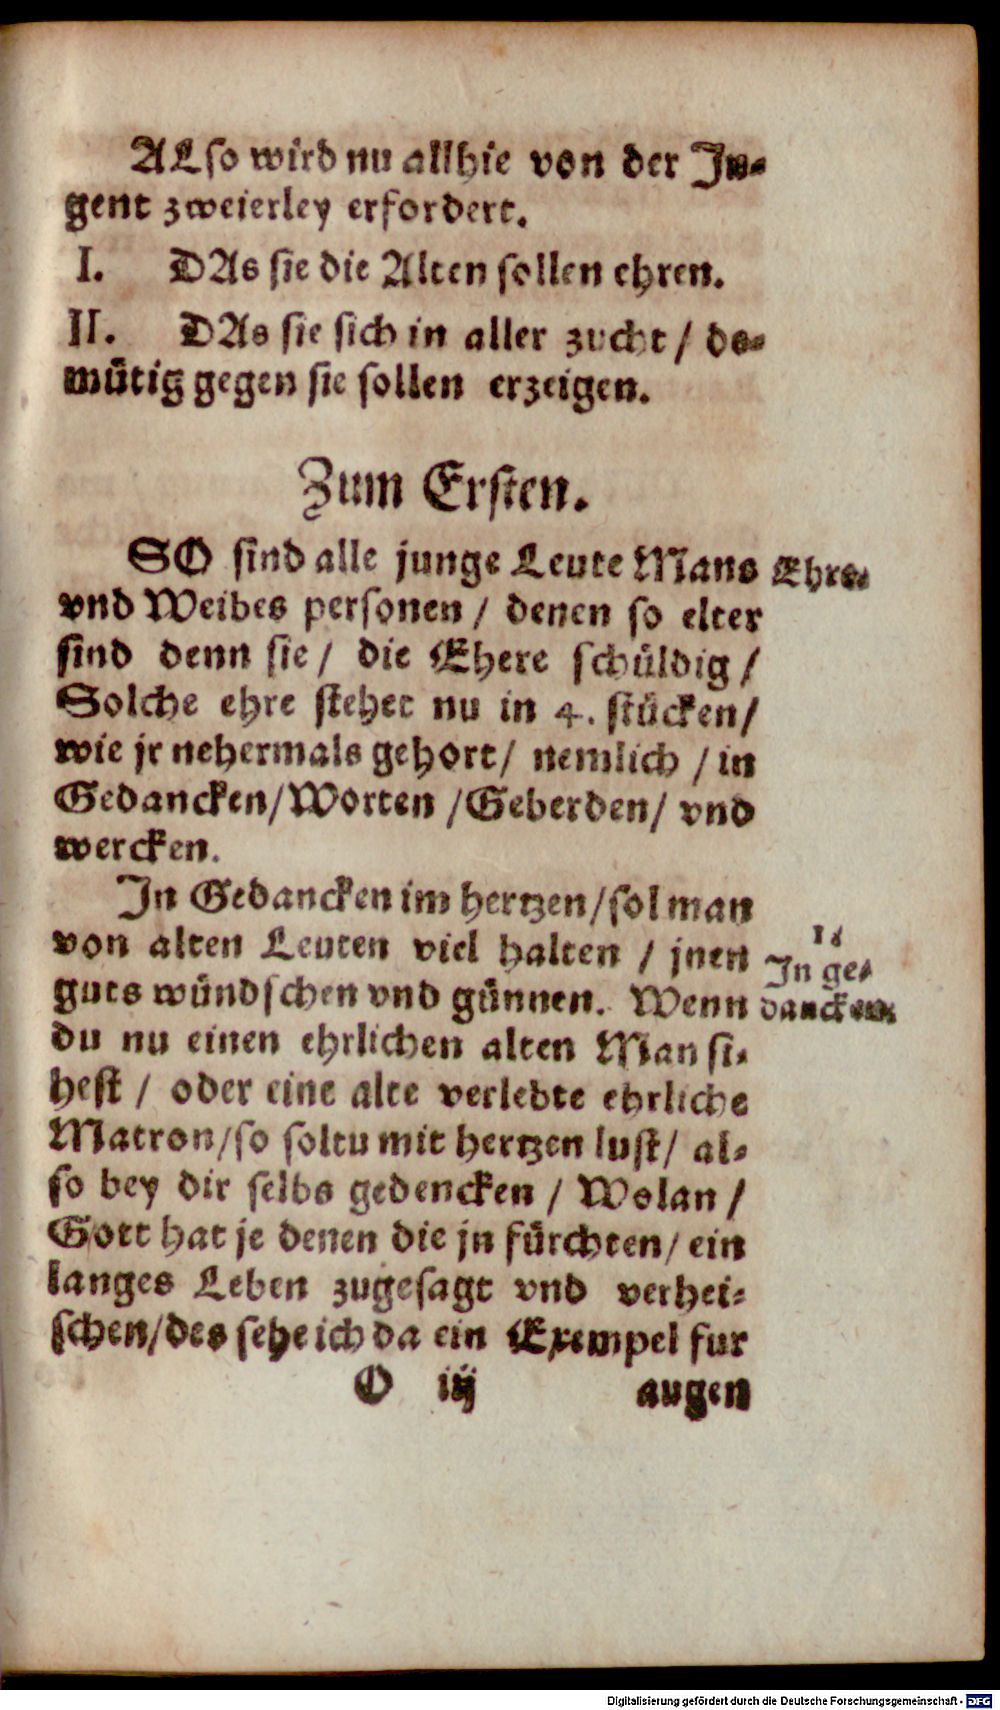 ALso wird nu allhie von der Ju-
gent zweierley erfordert.
I. DAs sie die Alten sollen ehren.
II. DAs sie sich in aller zucht / de-
mütig gegen sie sollen erzeigen.
Zum Ersten.
SO sind alle junge Leute Mans
Ehre.
vnd Weibes personen / denen so elter
sind denn sie / die Ehere schüldig /
Solche ehre stehet nu in 4. stücken /
wie jr nehermals gehort / nemlich / in
Gedancken / Worten / Geberden / vnd
wercken.
In Gedancken im hertzen / sol man
von alten Leuten viel halten / jnen
guts wündschen vnd günnen. Wenn
1.
In ge-
dancken.
du nu einen ehrlichen alten Man si-
hest / oder eine alte verlebte ehrliche
Matron / so soltu mit hertzen lust / al-
so bey dir selbs gedencken / Wolan /
Gott hat je denen die jn fürchten / ein
langes Leben zugesagt vnd verhei-
schen / des sehe ich da ein Exempel fur
O iij augen
Digitalisierung gefördert durch die Deutsche Forschungsgemeinschaft - DFG